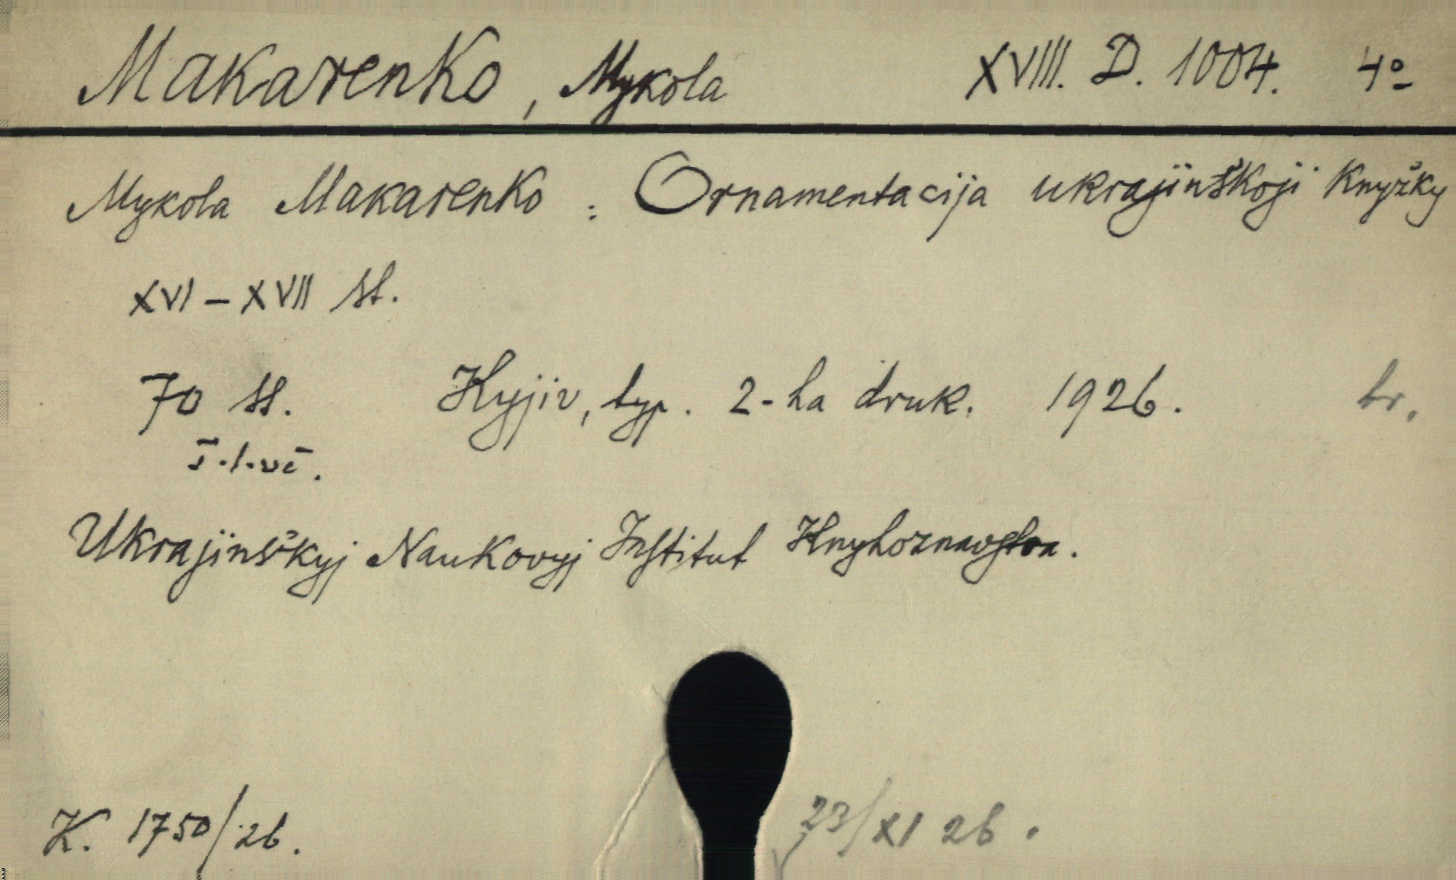 Makarenko, Mykola XVIII. D. 1004. 4º
Mykola Makarenko: Ornamentacija ukrajinśkoji Knyžky
XVI – XVII st.
70 st. Kyjiv, typ. 2-ha druk. 1926. br.
Ukrajinśkyj Naukovyj Institut Knyhoznavstva.
K. 1750/26. 23/XI 26.